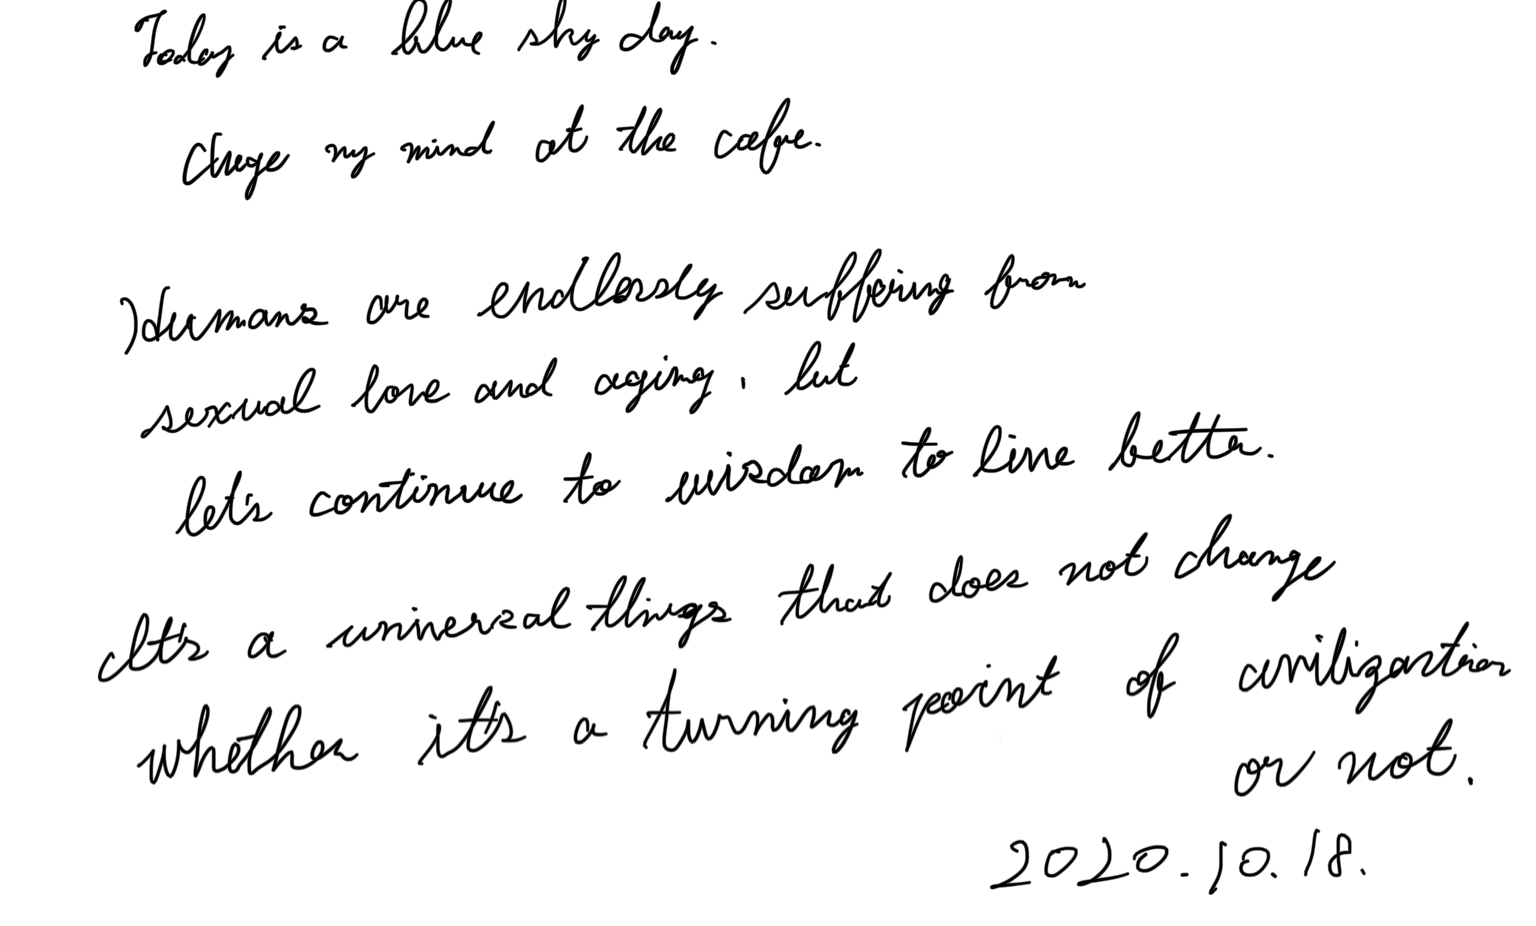 Today is a blue sky day.
my mind at the cafe.
Humans are endlessly suffering from
sexual love and aging, but
let's continue to wisdom to live better.
It's a universal things that does not change
whether it's a turning point of civilization
or not.
2020.10.18.